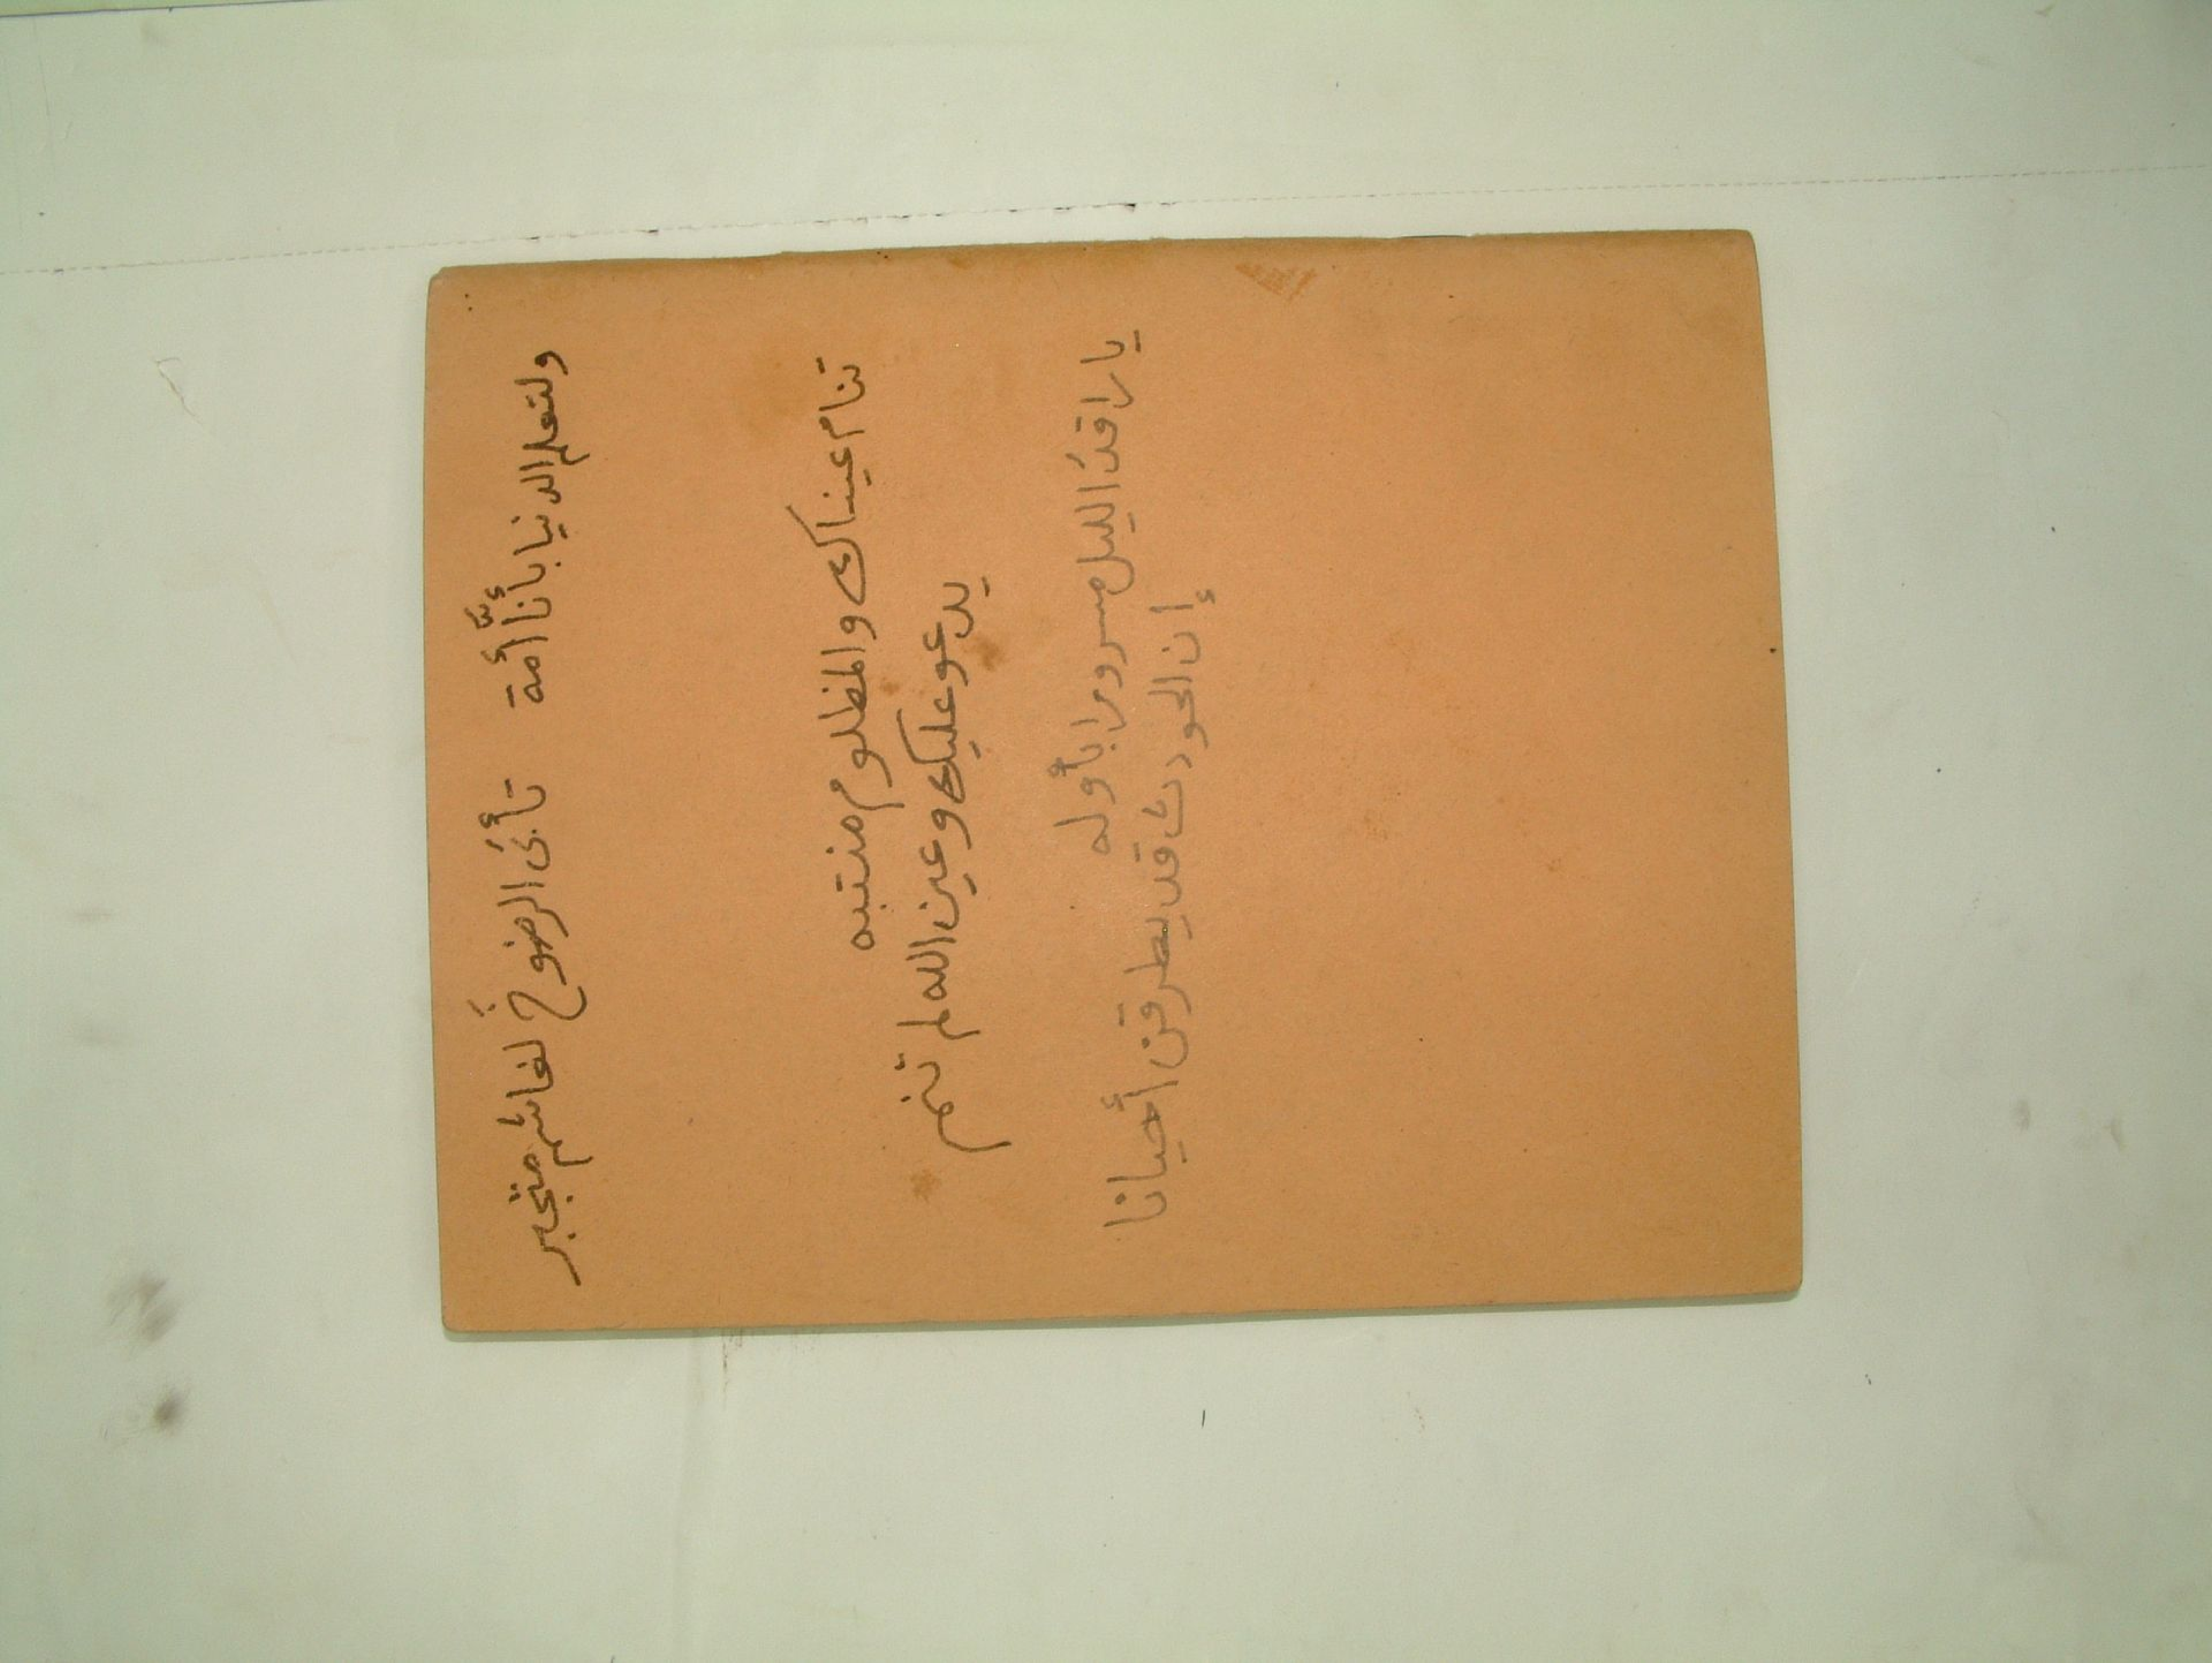 ولتعلم الدنيا بأنا أُمَّة تأبى الرضوخَ لغاشم متجبر
تنام عيناك والمظلوم منتبه
يدعو عليك وعين الله لم تنم
يا راقدَ الليل مسرورا بأوله
إن الحودث قد يطرقن أحيانا